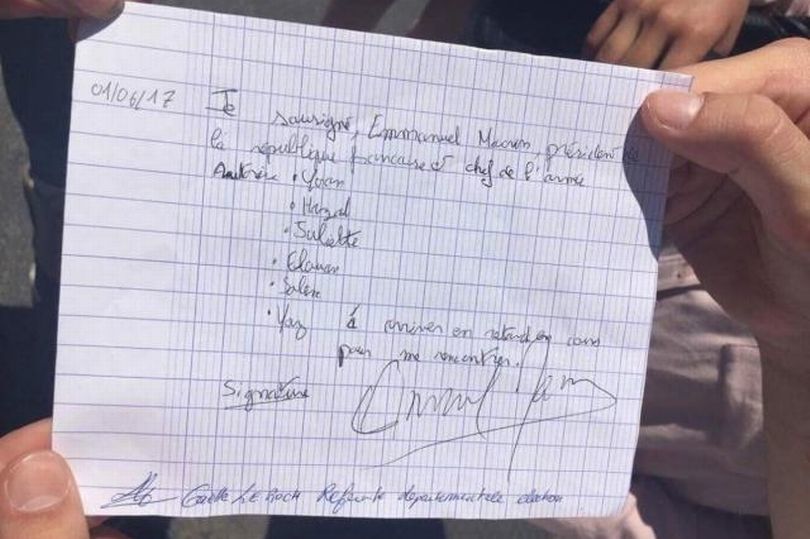 01/06/17
Je sousigné, Emmanuel Macron, président de
la république francaise et chef de l'armée
Autorise • Yoan
•
• Juliette
•
•
• Yaz à arriver en retard en cours
pour me rencontrer.
Signature
Gaëlle LE Roch Referente départementale election